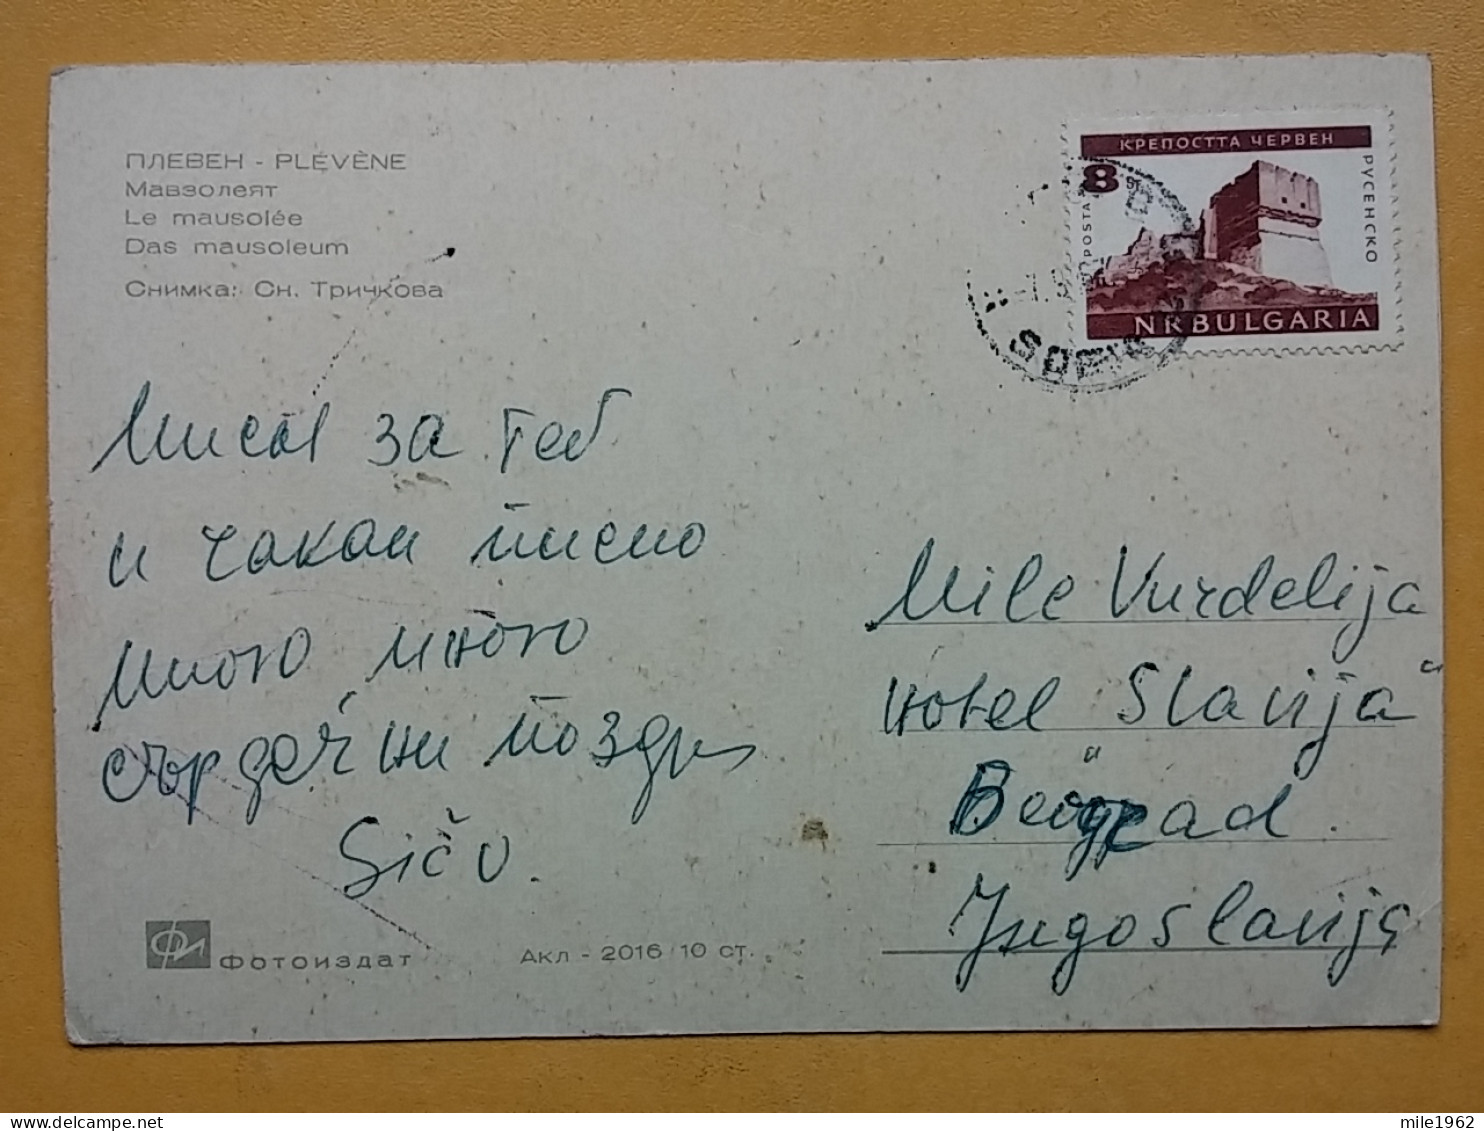 ПЛЕВЕН - PLÉVÈNE
Мавзолеят
Le mausolée
Das mausoleum
Снимка: Сн. Тричкова
КРЕПОСТТА ЧЕРВЕН
8 ST
POSTA
РУСЕНСКО
NRBULGARIA
SOFIA
Мисля за теб
и чакам писмо
много много
сърдечни поздр
Sičo.
Mile Vurdelija
Hotel Slavija"
Beograd.
Jugoslavija
Фотоиздат
Акл - 2016 10 ст.
mile1962